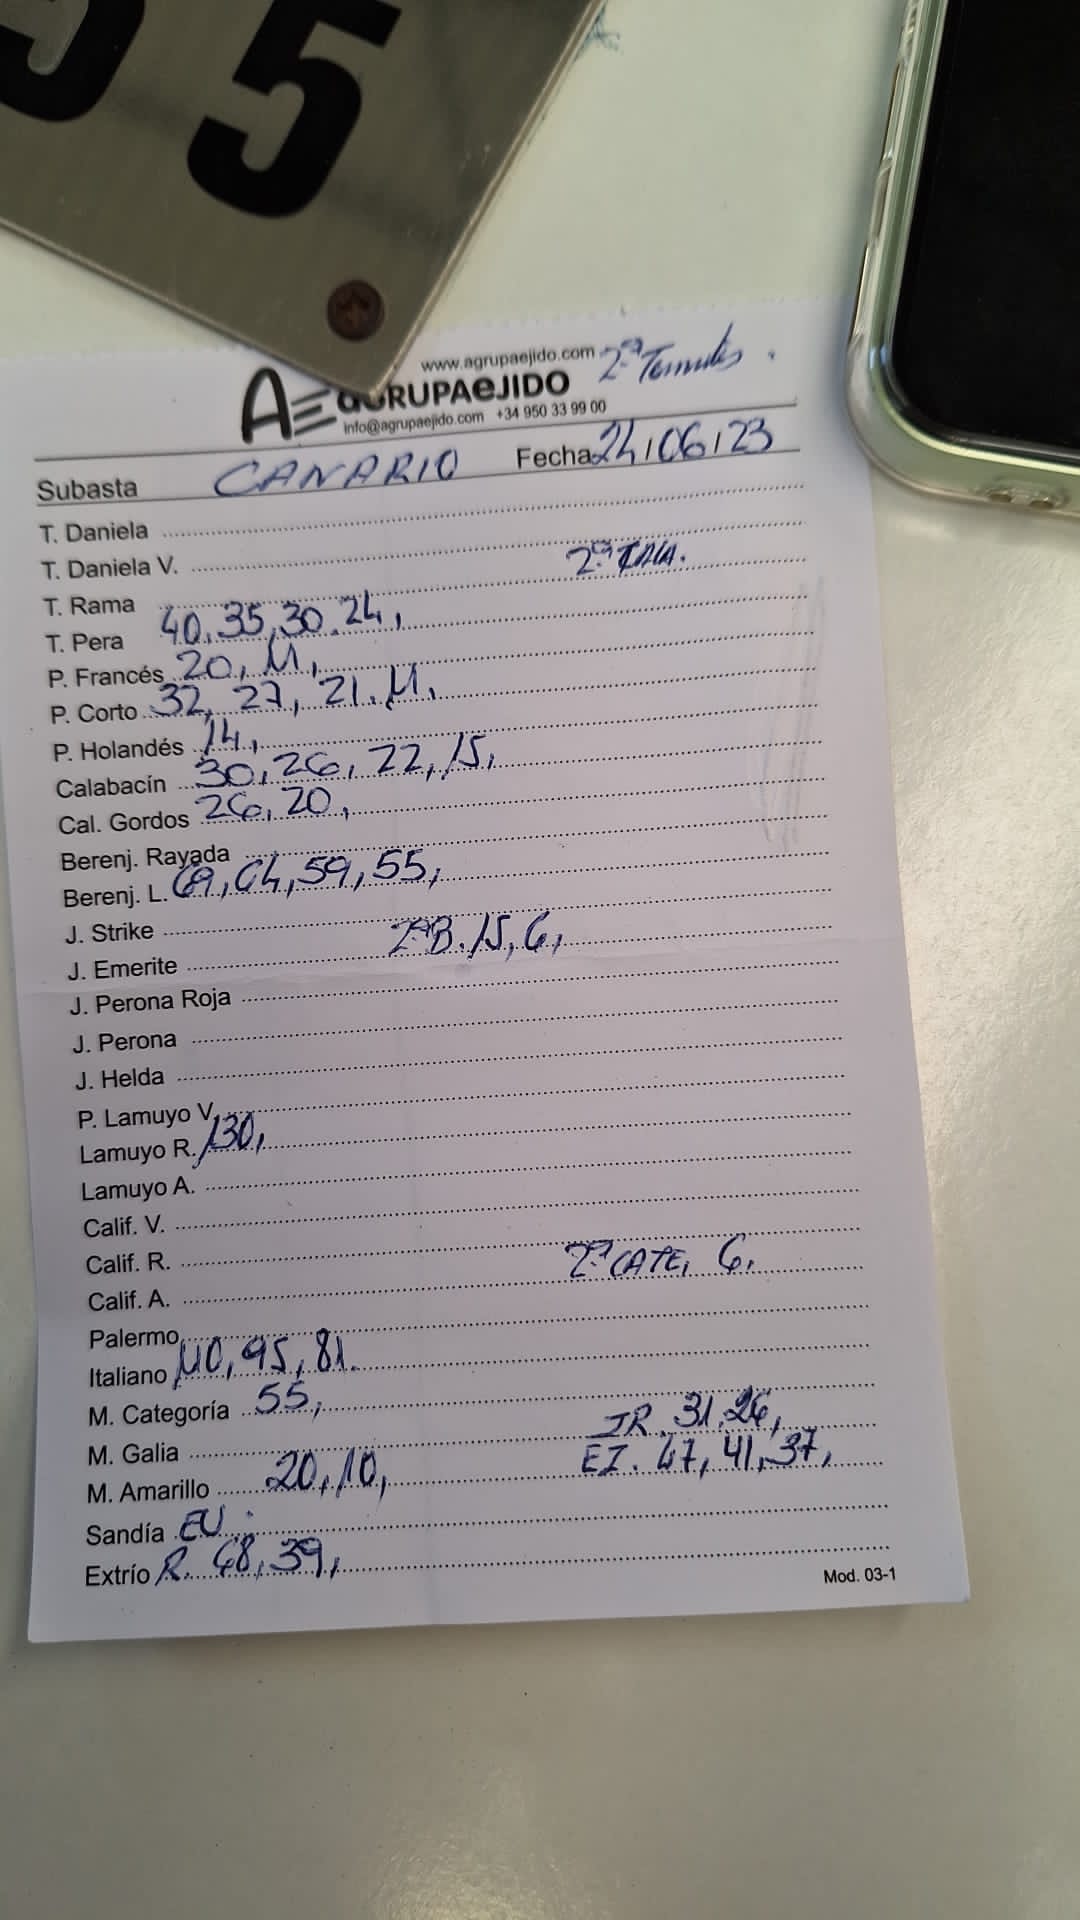 55
www.agrupaejido.com 2ª Tomates.
AE aGRUPAeJIDO
info@agrupaejido.com +34 950 33 99 00
Subasta CANARIO Fecha 24/06/23
T. Daniela
T. Daniela V.
T. Rama 2ª
T. Pera 40, 35, 30, 24,
P. Francés 20, 11,
P. Corto 32, 27, 21, 11,
P. Holandés 14,
Calabacín 30, 26, 22, 15,
Cal. Gordos 26, 20,
Berenj. Rayada
Berenj. L. 69, 64, 59, 55,
J. Strike
J. Emerite 2ªB. 15, 6,
J. Perona Roja
J. Perona
J. Helda
P. Lamuyo V.
Lamuyo R. 130,
Lamuyo A.
Calif. V.
Calif. R.
Calif. A. 2ª CATE, 6,
Palermo
Italiano 110, 95, 81.
M. Categoría 55,
M. Galia IR. 31, 26,
M. Amarillo 20, 10, EI. 47, 41, 37,
Sandía EU.
Extrío R. 48, 39,
Mod. 03-1